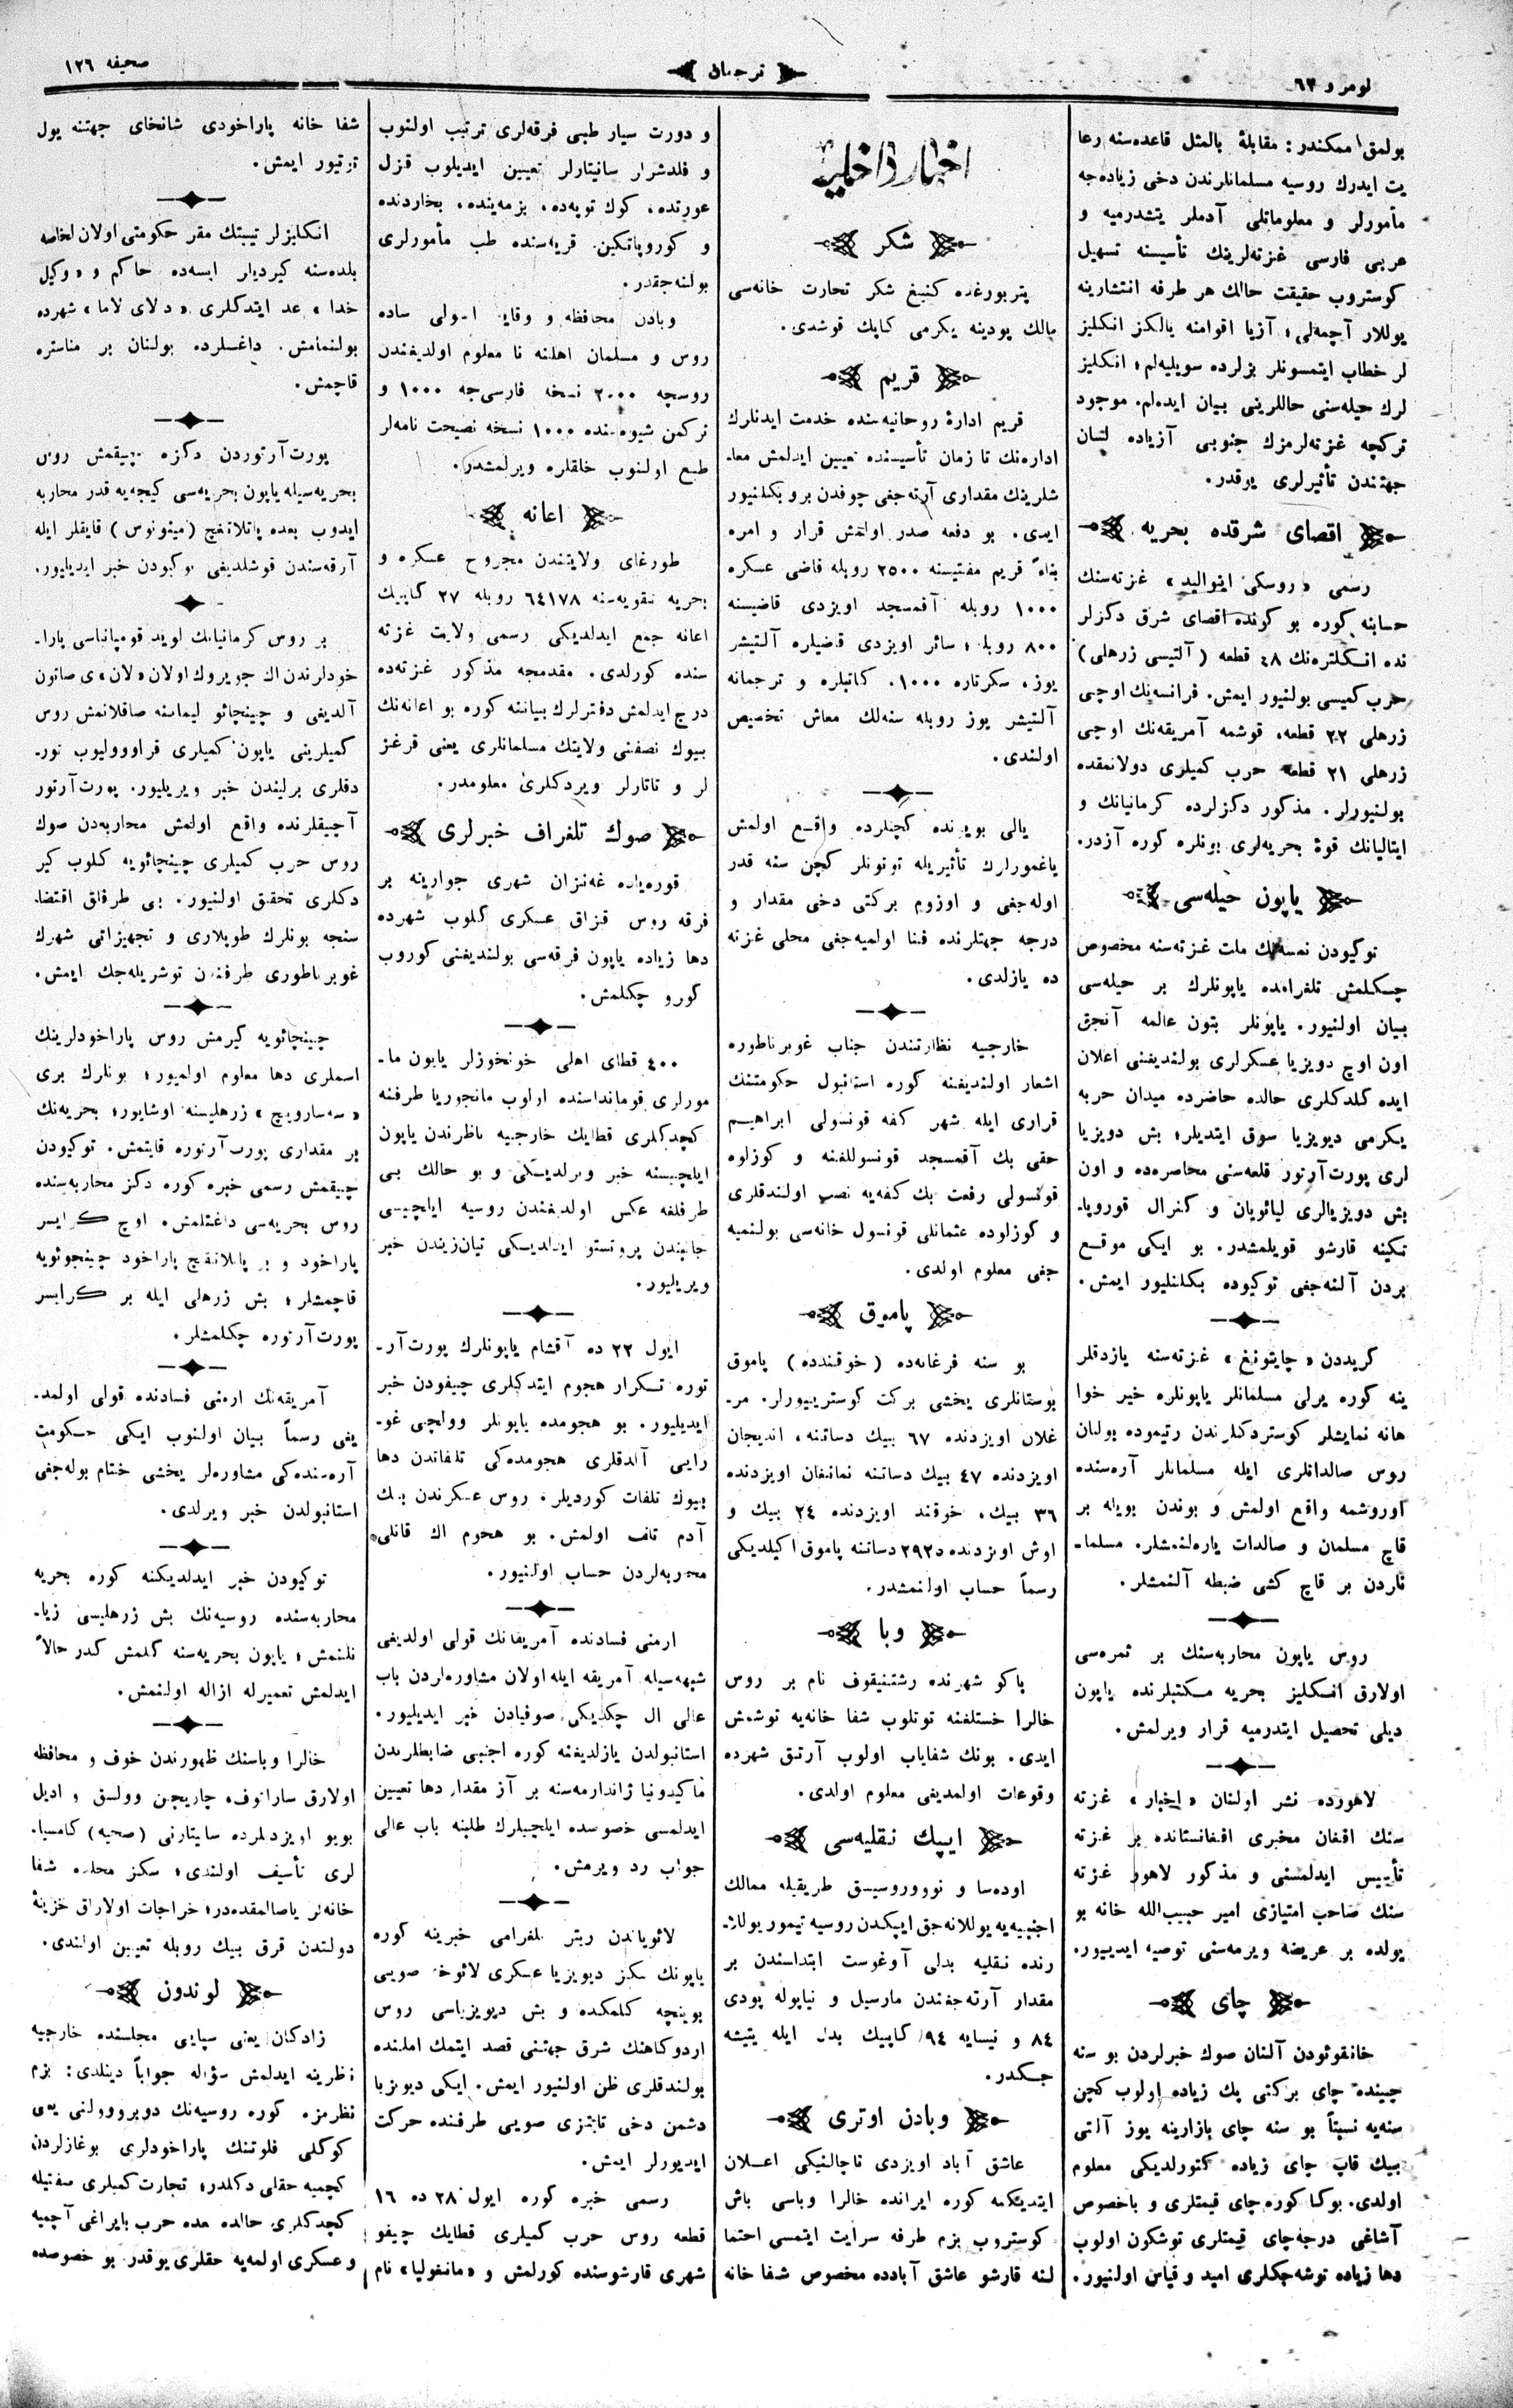 نومرو ٦٣
ترجمان
صحيفه ١٢٦
بولمق ممكندر: مقابلهٔ بالمثل قاعده‌سنه رعا
يت ايدرك روسيه مسلمانلرندن دخى زياده‌جه
مأمورلر و معلوماتلى آدملر يتشدرميه و
عربى فارسى غزته‌لرينك تأسيسنه تسهيل
كوستروب حقيقت حالك هر طرفه انتشارينه
يوللار آچمه‌لى؛ آزيا اقوامنه يالكز انكليز
لر خطاب ايتمسونلر بزلرده سويليه‌لم؛ انكليز
لرك حيله‌سنى حاللرينى بيان ايده‌لم. موجود
تركچه غزته‌لرمزك جنوبى آزياده لسان
جهتندن تأثيرلرى يوقدر.
اقصاى شرقده بحريه
رسمى «روسكى اينواليد» غزته‌سنك
حسابنه كوره بو كونده اقصاى شرق دكزلر
نده انكلتره‌نك ٤٨ قطعه (آلتيسى زرهلى)
حرب كميسى بولنيور ايمش. فرانسه‌نك اوچى
زرهلى ٢٢ قطعه، قوشمه آمريقه‌نك اوچى
زرهلى ٢١ قطعه حرب كميلرى دولانمقده
بولنيورلر. مذكور دكزلرده كرمانيانك و
ايتاليانك قوهٔ بحريه‌لرى بونلره كوره آزدر.
ياپون حيله‌سى
توكيودن نمسه‌نك ملت غزته‌سنه مخصوص
چكلمش تلغرامده ياپونلرك بر حيله‌سى
بيان اولنيور. ياپونلر بتون عالمه آنجق
اون اوچ دويزيا عسكرلرى بولنديغنى اعلان
ايده كلدكلرى حالده حاضرده ميدان حربه
يكرمى ديويزيا سوق ايتديلر؛ بش دويزيا
لرى پورت‌آرتور قلعه‌سنى محاصره‌ده و اون
بش دويزيالرى ليائويان و كنرال قوروپا-
تكينه قارشو قويلمشدر. بو ايكى موقع
بردن آلنه‌جغى توكيوده بكلنليور ايمش.
كريددن «چايتونغ» غزته‌سنه يازدقلر
ينه كوره يرلى مسلمانلر ياپونلره خير خوا
هانه نمايشلر كوستردكلرندن رتيموده بولنان
روس صالداتلرى ايله مسلمانلر آره‌سنده
اوروشمه واقع اولمش و بوندن بويله بر
قاچ مسلمان و صالدات ياره‌لنمشلر. مسلما-
نلردن بر قاچ كشى ضبطه آلنمشلر.
روس ياپون محاربه‌سنك بر ثمره‌سى
اولارق انكليز بحريه مكتبلرنده ياپون
ديلى تحصيل ايتدرميه قرار ويرلمش.
لاهورده نشر اولنان «اخبار» غزته
سنك افغان مخبرى افغانستانده بر غزته
تأسيس ايدلمسنى و مذكور لاهور غزته
سنك صاحب امتيازى امير حبيب‌الله خانه بو
يولده بر عريضه ويرمه‌سنى توصيه ايدييور.
چاى
خانقوئودن آلنان صوك خبرلردن بو سنه
چينده چاى بركتى پك زياده اولوب كچن
سنه‌يه نسبتاً بو سنه چاى بازارينه يوز آلتى
بيك قاپ چاى زياده كتورلديكى معلوم
اولدى. بوكا كوره چاى قيمتلرى و باخصوص
آشاغى درجه‌چاى قيمتلرى توشكون اولوب
دها زياده توشه‌جكلرى اميد و قياس اولنيور.
اخبار داخليه
شكر
پتربورغده كنيغ شكر تجارت خانه‌سى
مالك پودينه يكرمى كاپك قوشدى.
قريم
قريم ادارهٔ روحانيه‌سنده خدمت ايدنلرك
اداره‌نك تا زمان تأسيسنده تعيين ايدلمش معا-
شلرينك مقدارى آرته‌جغى چوقدن برو بكلنيور
ايدى. بو دفعه صدر اولنمش قرار و امره
بناءً قريم مفتيسنه ٢٥٠٠ روبله قاضى عسكره
١٠٠٠ روبله آقمسجد اويزدى قاضيسنه
٨٠٠ روبله؛ سائر اويزدى قضيلره آلتيشر
يوز، سكرتاره ١٠٠٠، كاتبلره و ترجمانه
آلتيشر يوز روبله سنه‌لك معاش تخصيص
اولندى.
يالى بوينده كچنلرده واقع اولمش
ياغمورلرك تأثيريله توتونلر كچن سنه قدر
اوله‌جغى و اوزوم بركتى دخى مقدار و
درجه جهتلرنده فنا اولميه‌جغى محلى غزته
ده يازلدى.
خارجيه نظارتندن جناب غوبرناطوره
اشعار اولنديغنه كوره استانبول حكومتنك
قرارى ايله شهر كفه قونسولى ابراهيم
حقى بك آقمسجد قونسوللغنه و كوزلوه
قونسولى رفعت بك كفه‌يه نصب اولندقلرى
و كوزلوده عثمانلى قونسول خانه‌سى بولنميه
جغى معلوم اولدى.
پاموق
بو سنه فرغانه‌ده (خوقندده) پاموق
بوستانلرى يخشى بركت كوسترييورلر. مر-
غلان اويزدنده ٦٧ بيك دساتنه، انديجان
اويزدنده ٤٧ بيك دساتنه نمانغان اويزدنده
٣٦ بيك، خوقند اويزدنده ٢٤ بيك و
اوش اويزدنده ٢٩٢٥ دساتنه پاموق اكيلديكى
رسماً حساب اولنمشدر.
وبا
باكو شهرنده رشتنيقوف نام بر روس
خالرا خستلغنه توتلوب شفا خانه‌يه توشمش
ايدى. بونك شفاياب اولوب آرتق شهرده
وقوعات اولمديغى معلوم اولدى.
ايپك نقليه‌سى
اوده‌سا و نووروسيسق طريقيله ممالك
اجنبيه‌يه يوللانه‌جق ايپكدن روسيه تيمور يوللار-
رنده نقليه بدلى آوغوست ابتداسندن بر
مقدار آرته‌جغندن مارسيل و نياپوله پودى
٨٤ و نيسايه ٩٤ كاپيك بدل ايله يتيشه
جكدر.
وبادن اوترى
عاشق آباد اويزدى ناچالنيكى اعلان
ايتديكنه كوره ايرانده خالرا وباسى باش
كوستروب بزم طرفه سرايت ايتمسى احتما
لنه قارشو عاشق آبادده مخصوص شفا خانه
و دورت سيار طبى فرقه‌لرى ترتيب اولنوب
و فلدشرلر سانيتارلر تعيين ايديلوب قزل
عورتده، كوك توپه‌ده، بزمه‌ينده، بخاردنده
و كوروپاتكين قريه‌سنده طب مأمورلرى
بولنه‌جقدر.
وبادن محافظه و وقايه اصولى ساده
روس و مسلمان اهلنه نا معلوم اولديغندن
روسچه ٢٠٠٠ نسخه فارسى‌جه ١٠٠٠ و
تركمن شيوه‌سنده ١٠٠٠ نسخه نصيحت نامه‌لر
طبع اولنوب خلقلره ويرلمشدر.
اعانه
طورغاى ولايتندن مجروح عسكره و
بحريه تقويه‌سنه ٦٤١٧٨ روبله ٢٧ كاپيك
اعانه جمع ايدلديكى رسمى ولايت غزته
سنده كورلدى. مقدمجه مذكور غزته‌ده
درج ايدلمش دفترلرك بياننه كوره بو اعانه‌نك
بيوك نصفنى ولايتك مسلمانلرى يعنى قرغز
لر و تاتارلر ويردكلرى معلومدر.
صوك تلغراف خبرلرى
قوره‌ياده غه‌نزان شهرى جوارينه بر
فرقه روس قزاق عسكرى كلوب شهرده
دها زياده ياپون فرقه‌سى بولنديغنى كوروب
كورو چكلمش.
٤٠٠ قطاى اهلى خونخوزلر ياپون ما-
مورلرى قومانداسنده اولوب مانجوريا طرفنه
كچدكلرى قطايك خارجيه ناظرندن ياپون
ايلچيسنه خبر ويرلديكى و بو حالك بى
طرفلغه عكس اولديغندن روسيه ايلچيسى
جانبندن پروتستو ايدلديكى تيان‌زيندن خبر
ويريليور.
ايول ٢٢ ده آقشام ياپونلرك پورت‌آر-
توره تكرار هجوم ايتدكلرى چيفودن خبر
ايديليور. بو هجومده ياپونلر وولچى غو-
رايى آلدقلرى هجومده‌كى تلفاتدن دها
بيوك تلفات كورديلر. روس عسكرندن بيك
آدم تلف اولمش. بو هجوم اك قانلى
محاربه‌لردن حساب اولنيور.
ارمنى فسادنده آمريقانك قولى اولديغى
شبهه‌سيله آمريقه ايله اولان مشاوره‌لردن باب
عالى ال چكديكى صوفيادن خبر ايديليور.
استانبولدن يازلديغنه كوره اجنبى ضابطلرندن
ماكيدونيا ژاندارمه‌سنه بر آز مقدار دها تعيين
ايدلمسى خصوصده ايلچيلرك طلبنه باب عالى
جواب رد ويرمش.
لائوياندن ريتر تلغرامى خبرينه كوره
ياپونك سكز ديويزيا عسكرى لائوخه صويى
بوينچه كلمكده و بش ديويزياسى روس
اردوكاهنك شرق جهتنى قصد ايتمك املنده
بولندقلرى ظن اولنيور ايمش. ايكى ديويزيا
دشمن دخى تايتزى صويى طرفنده حركت
ايديورلر ايمش.
رسمى خبره كوره ايول ٢٨ ده ١٦
قطعه روس حرب كميلرى قطايك چيفو
شهرى قارشوسنده كورلمش و «مانغوليا» نام
شفا خانه پاراخودى شانخاى جهتنه يول
توتيور ايمش.
انكليزلر تيبتك مقر حكومتى اولان لخاصه
بلده‌سنه كيرديلر ايسه‌ده حاكم و «وكيل
خدا» عد ايتدكلرى «دلاى لاما» شهرده
بولنمامش. داغسلرده بولنان بر مناستره
قاچمش.
پورت‌آرتوردن دكزه چيقمش روس
بحريه‌سيله ياپون بحريه‌سى كيجه‌يه قدر محاربه
ايدوب بعده پاتلاتغچ (مينونوس) قايقلر ايله
آرقه‌سندن قوشلديغى توكيودن خبر ايديليور.
بر روس كرمانيانك لويد قومپانياسى پارا-
خودلرندن اك جويروك اولان «لان» ى صاتون
آلديغى و چينچائو ليماننه صاقلانمش روس
كميلرينى ياپون كميلرى قراووليوب تور-
دقلرى برليندن خبر ويريليور. پورت‌آرتور
آچيقلرنده واقع اولمش محاربه‌دن صوك
روس حرب كميلرى چينچائويه كلوب كير
دكلرى تحقيق اولنيور. بى طرفلق اقتضا-
سنجه بونلرك طوپلارى و تجهيزاتى شهرك
غوبرناطورى طرفندن توشريله‌جك ايمش.
چينچائويه كيرمش روس پاراخودلرينك
اسملرى دها معلوم اولميور؛ بونلرك برى
«سه‌سارويچ» زرهليسنه اوشايور؛ بحريه‌نك
بر مقدارى پورت‌آرتوره قايتمش. توكيودن
چيقمش رسمى خبره كوره دكز محاربه‌سنده
روس بحريه‌سى داغتلمش. اوچ كرايسر
پاراخود و بر پاتلاتقچ پاراخود چينجوئويه
قاچمشلر؛ بش زرهلى ايله بر كرايسر
پورت‌آرتوره چكلمشلر.
آمريقه‌نك ارمنى فسادنده قولى اولمد-
يغى رسماً بيان اولنوب ايكى حكومت
آره‌سنده‌كى مشاوره‌لر يخشى ختام بوله‌جغى
استانبولدن خبر ويرلدى.
توكيودن خبر ايدلديكنه كوره بحريه
محاربه‌سنده روسيه‌نك بش زرهليسى زيا-
نلنمش؛ ياپون بحريه‌سنه كلمش كدر حالاً
ايدلمش تعميرله ازاله اولنمش.
خالرا وباسنك ظهورندن خوف و محافظه
اولارق سارانوف، چاريچين وولسق و اديل
بويو اويزدلرده سانيتارنى (صحيه) كاميسيا-
لرى تأسيف اولندى؛ سكز محلده شفا
خانه‌لر ياصالمقده‌در؛ خراجات اولاراق خزينهٔ
دولتدن قرق بيك روبله تعيين اولندى.
لوندون
زادكان يعنى سپايى مجلسنده خارجيه
نظرينه ايدلمش سؤاله جواباً دينلدى: بزم
نظرمزه كوره روسيه‌نك دوبرووولنى يعنى
كوكلى فلوتنك پاراخودلرى بوغازلردن
كچميه حقلى دكلدر؛ تجارت كميلرى صفتيله
كچدكلرى حالده بعده حرب بايراغى آچميه
و عسكرى اولمه‌يه حقلرى يوقدر. بو خصوصده